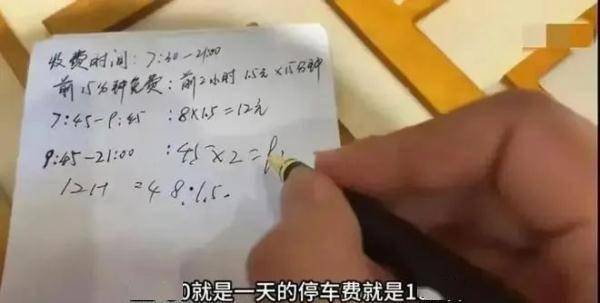 收费时间：7:30-21:00
前15分钟免费：前2小时 1.5元×15分钟
7:45-9:45 :8×1.5=12元
9:45-21:00 :45×2=9
12H =48:15.
0就是一天的停车费就是1